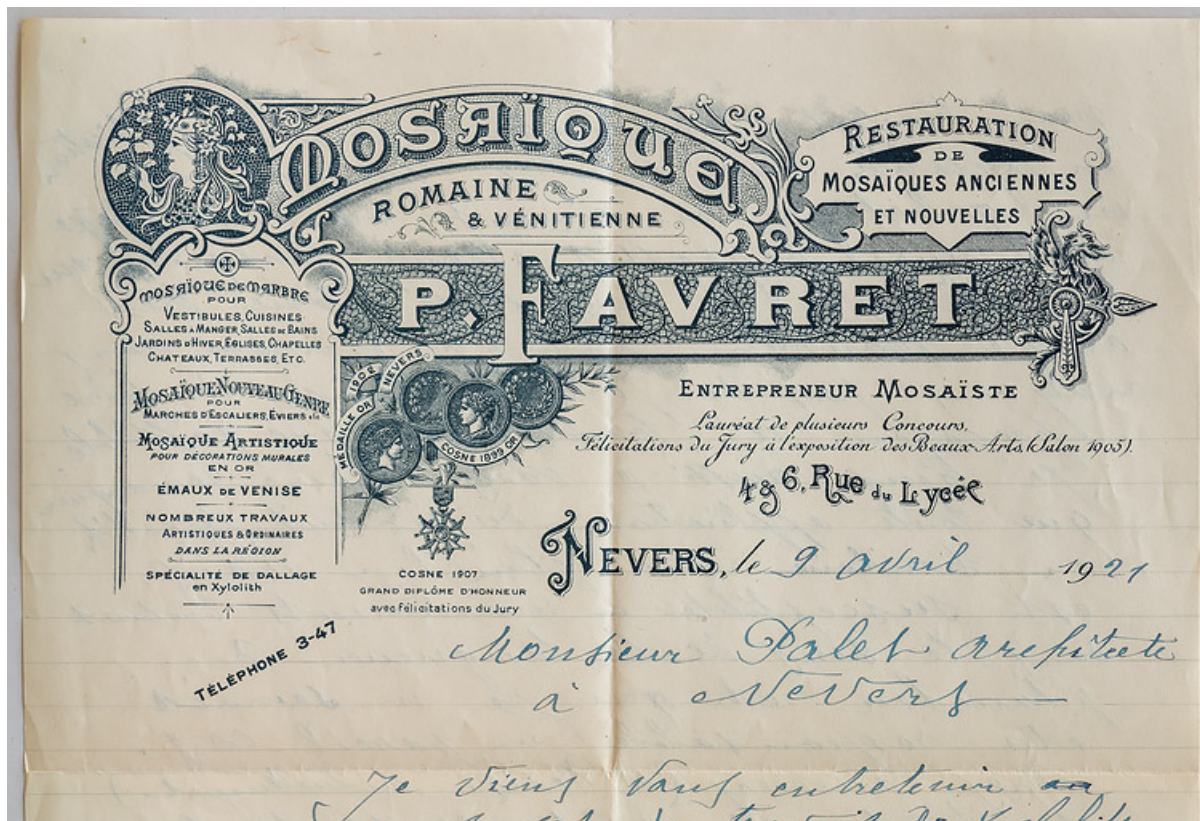 MOSAÏQUE
ROMAINE
& VÉNITIENNE
RESTAURATION
DE
MOSAÏQUES ANCIENNES
ET NOUVELLES
P. FAVRET
MOSAÏQUE DE MARBRE
POUR
VESTIBULES, CUISINES
SALLES A MANGER, SALLES DE BAINS
JARDINS D'HIVER, ÉGLISES, CHAPELLES
CHATEAUX, TERRASSES, ETC.
MOSAÏQUE NOUVEAU GENRE
POUR
MARCHES D'ESCALIERS, ÉVIERS, &
MOSAÏQUE ARTISTIQUE
POUR DÉCORATIONS MURALES
EN OR
ÉMAUX DE VENISE
NOMBREUX TRAVAUX
ARTISTIQUES & ORDINAIRES
DANS LA RÉGION
SPÉCIALITÉ DE DALLAGE
en Xylolith
TÉLÉPHONE 3-47
MÉDAILLE OR 1902 NEVERS
COSNE 1899 OR
COSNE 1907
GRAND DIPLÔME D'HONNEUR
avec félicitations du Jury
ENTREPRENEUR MOSAÏSTE
Lauréat de plusieurs Concours,
Félicitations du Jury à l'exposition des Beaux-Arts, (Salon 1905).
4 & 6, Rue du Lycée
NEVERS, le 9 avril 1921
Monsieur Palet architecte
à Nevers
Je viens vous entretenir